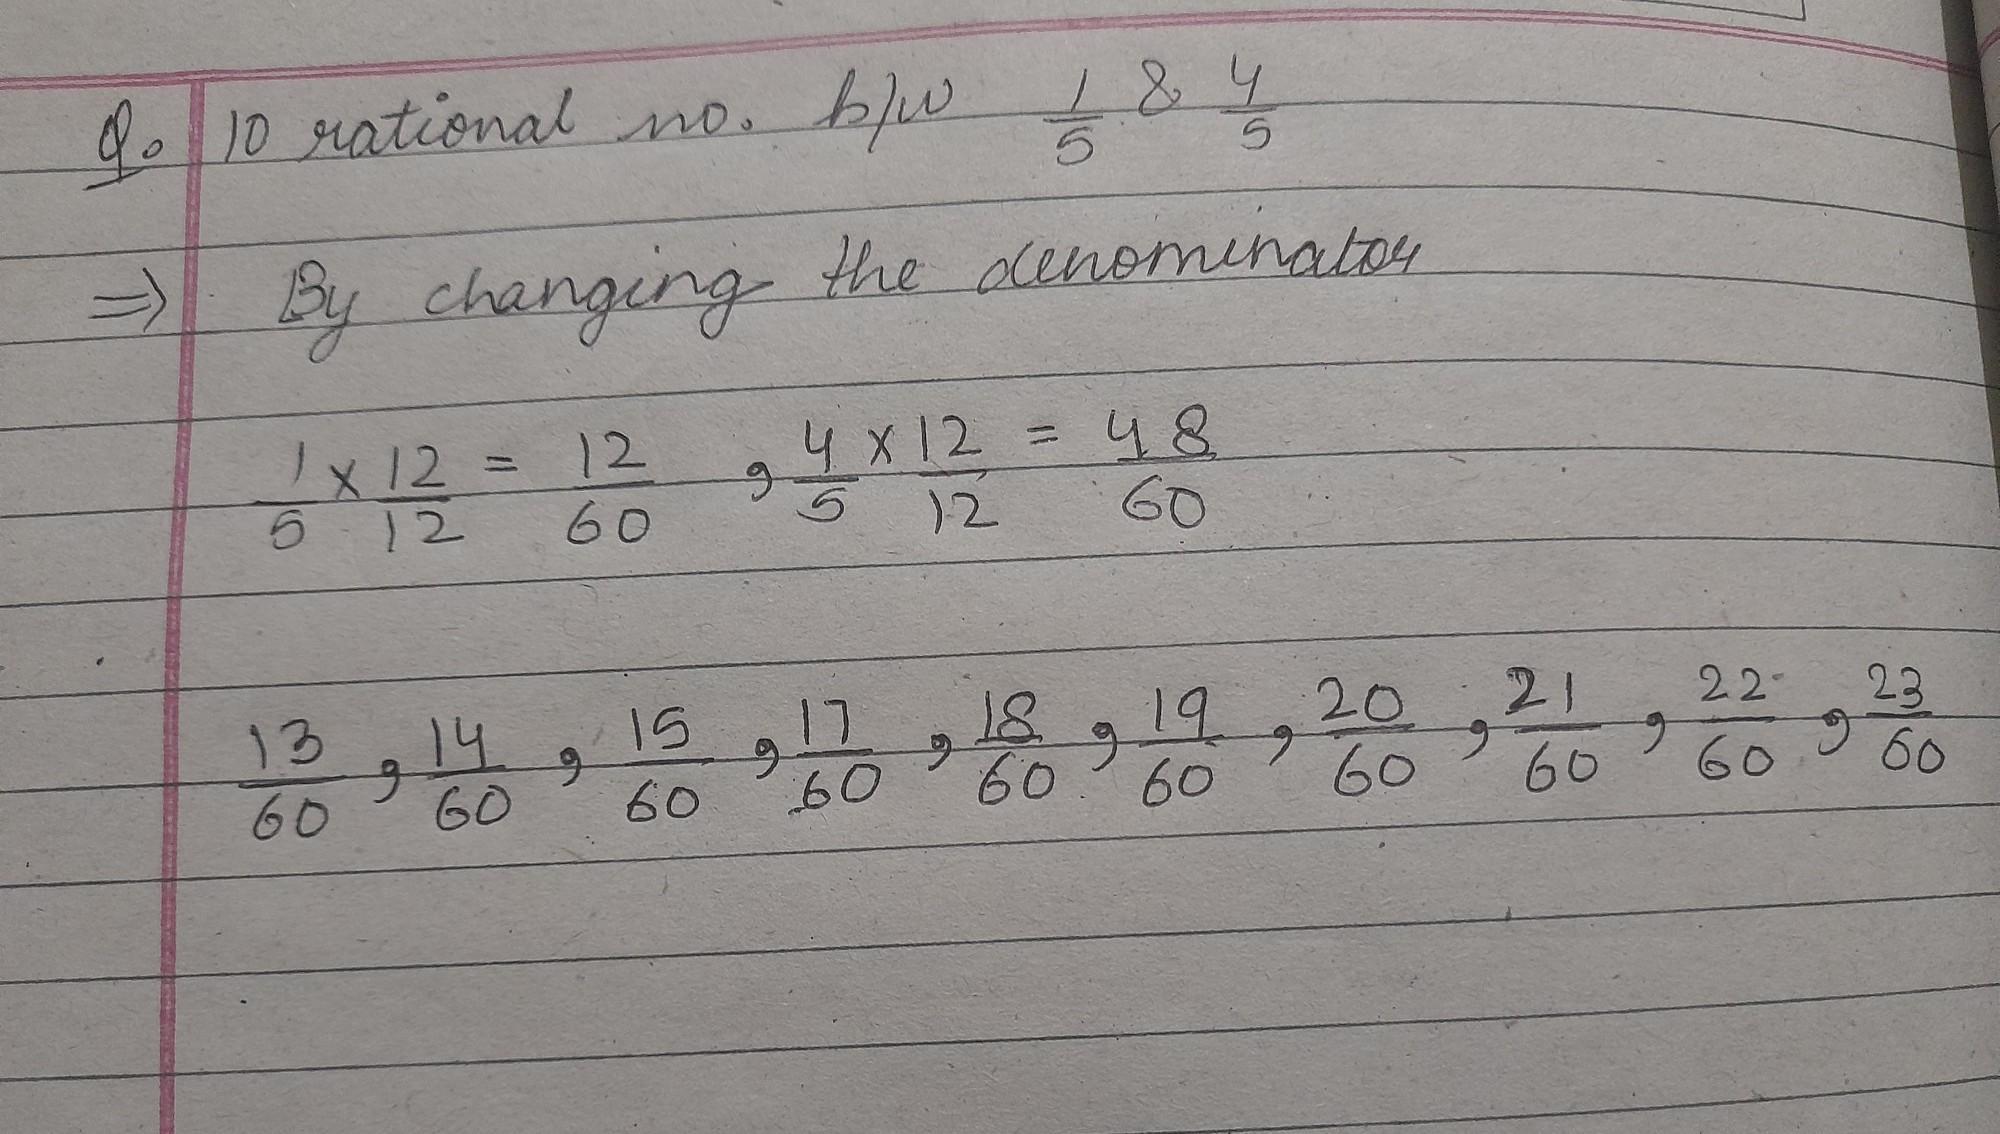 Q. 10 rational no. b/w 1/5 & 4/5
⇒ By changing the denominator
1/5 × 12/12 = 12/60 , 4/5 × 12/12 = 48/60
13/60 , 14/60 , 15/60 , 17/60 , 18/60 , 19/60 , 20/60 , 21/60 , 22/60 , 23/60